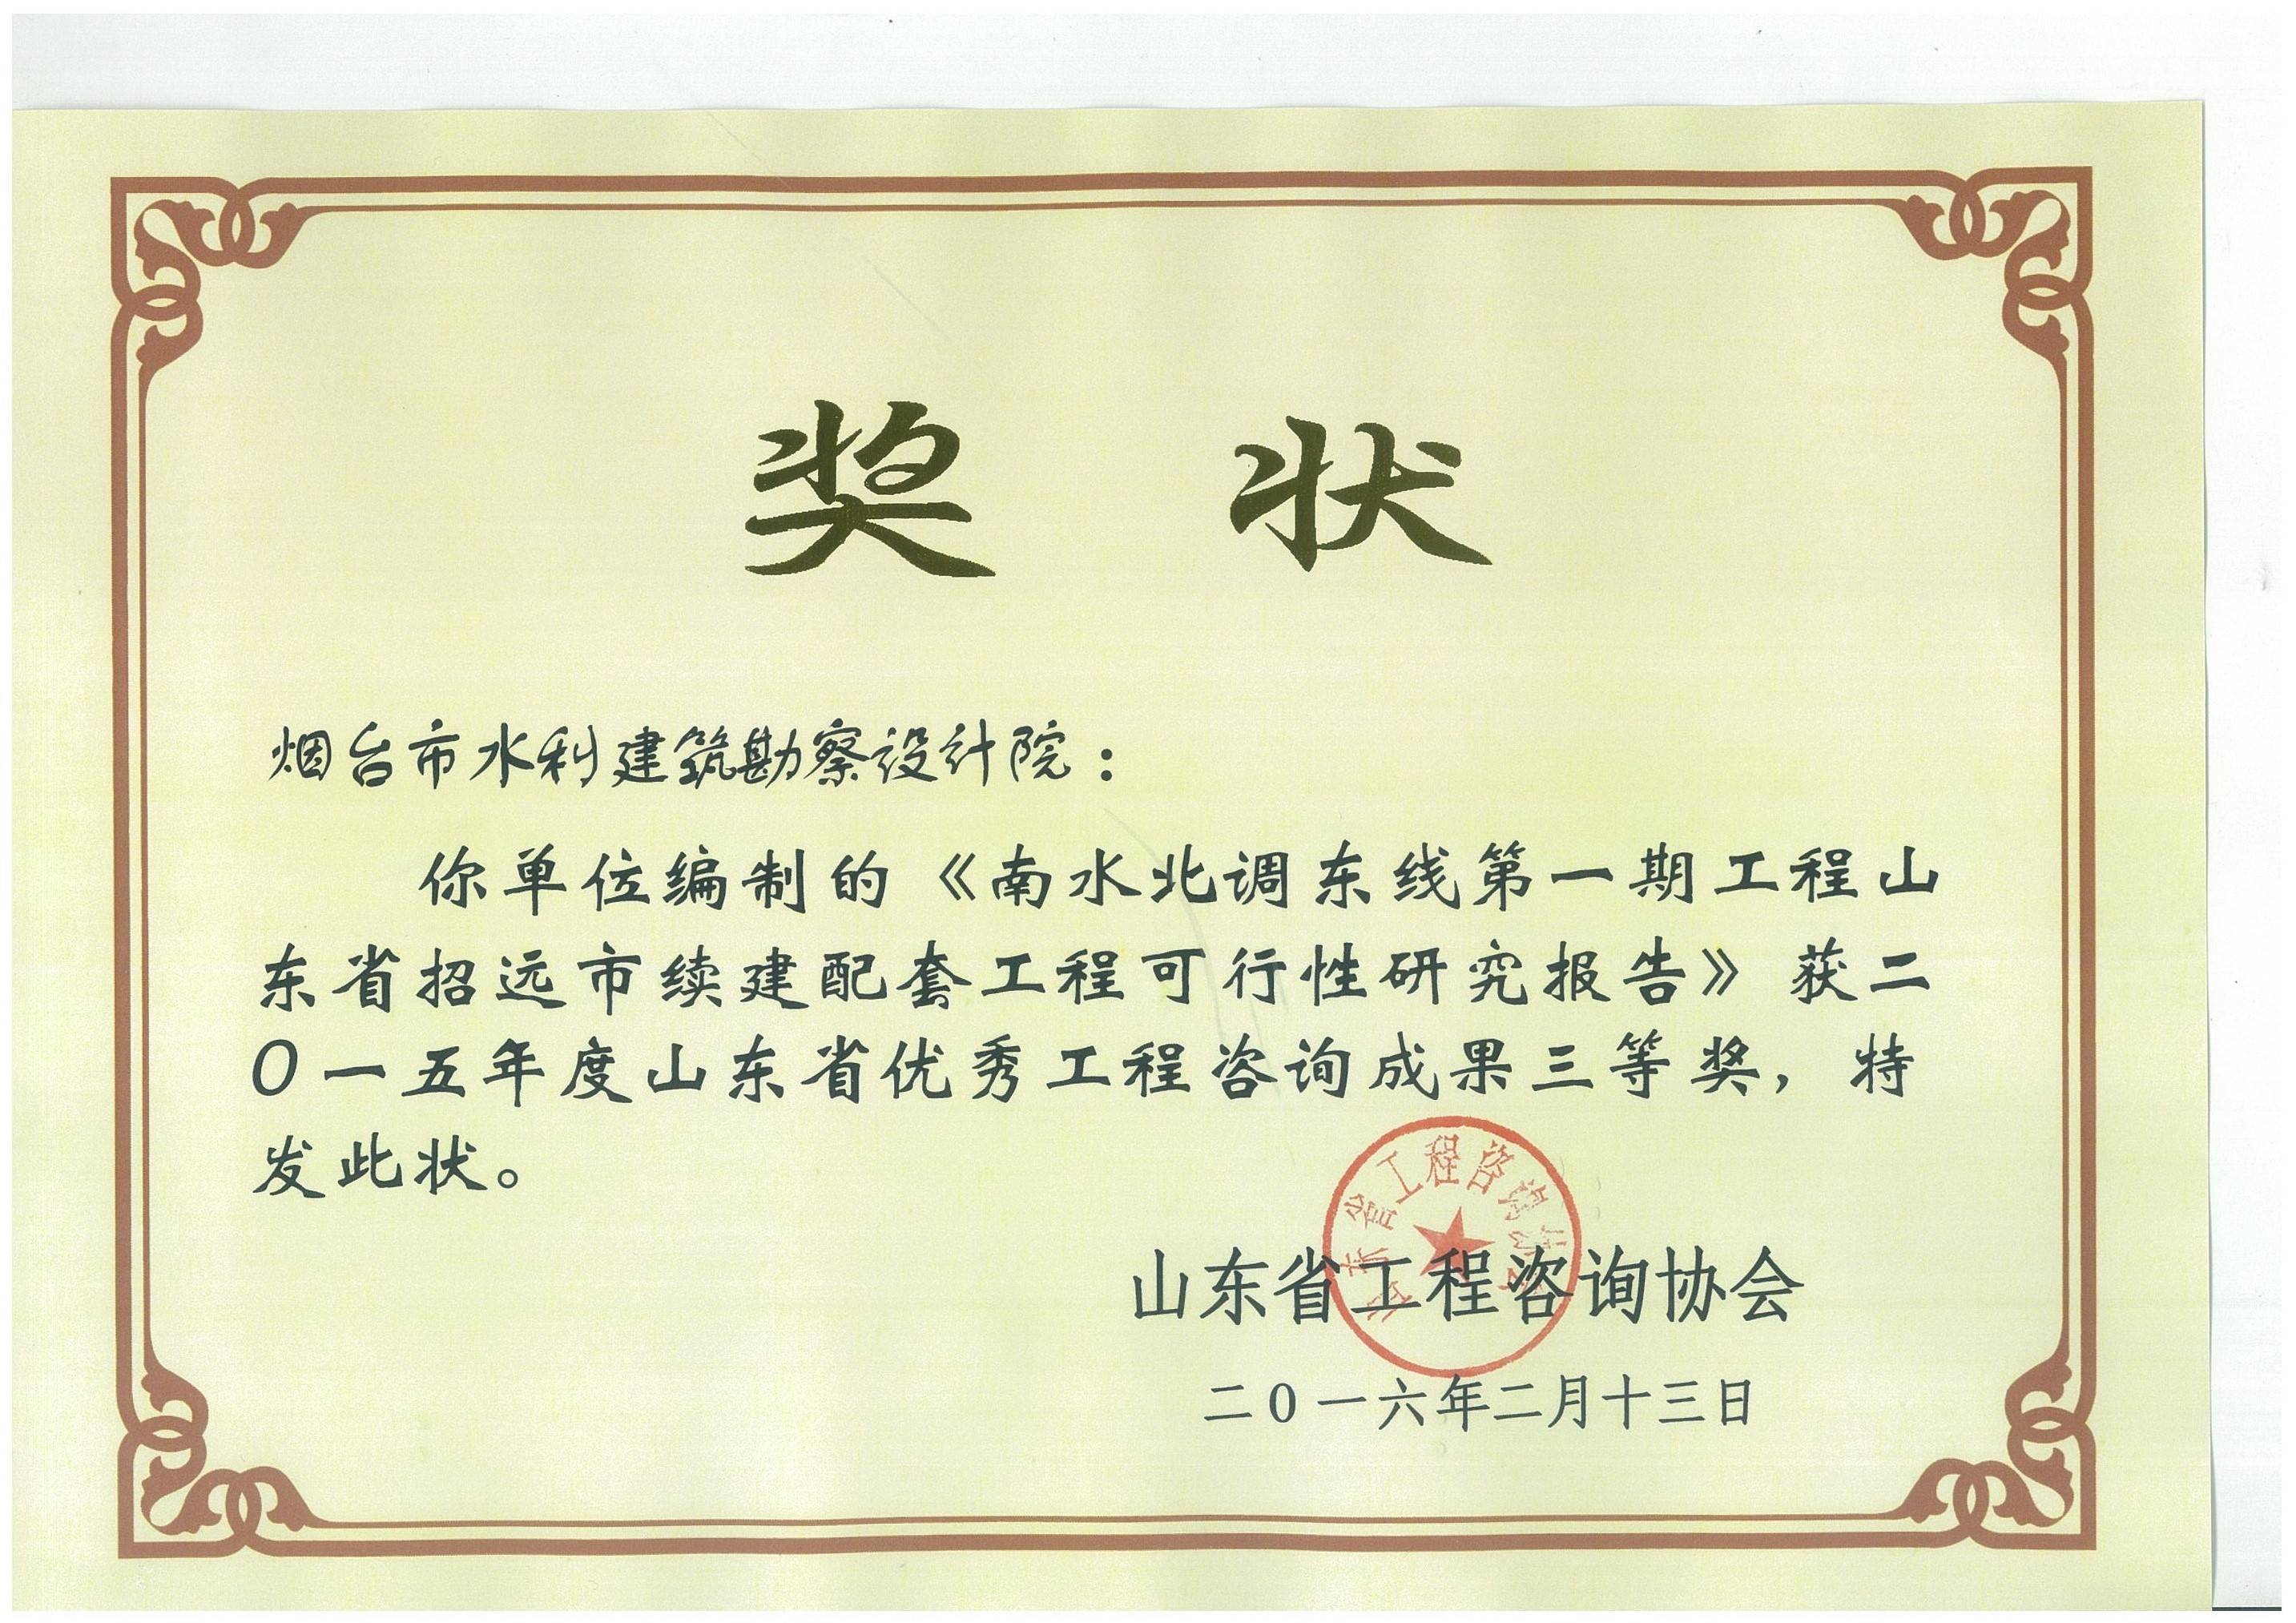 奖 状
烟台市水利建筑勘察设计院：
你单位编制的《南水北调东线第一期工程山
东省招远市续建配套工程可行性研究报告》获二
〇一五年度山东省优秀工程咨询成果三等奖，特
发此状。
山东省工程咨询协会
山东省工程咨询协会
二〇一六年二月十三日